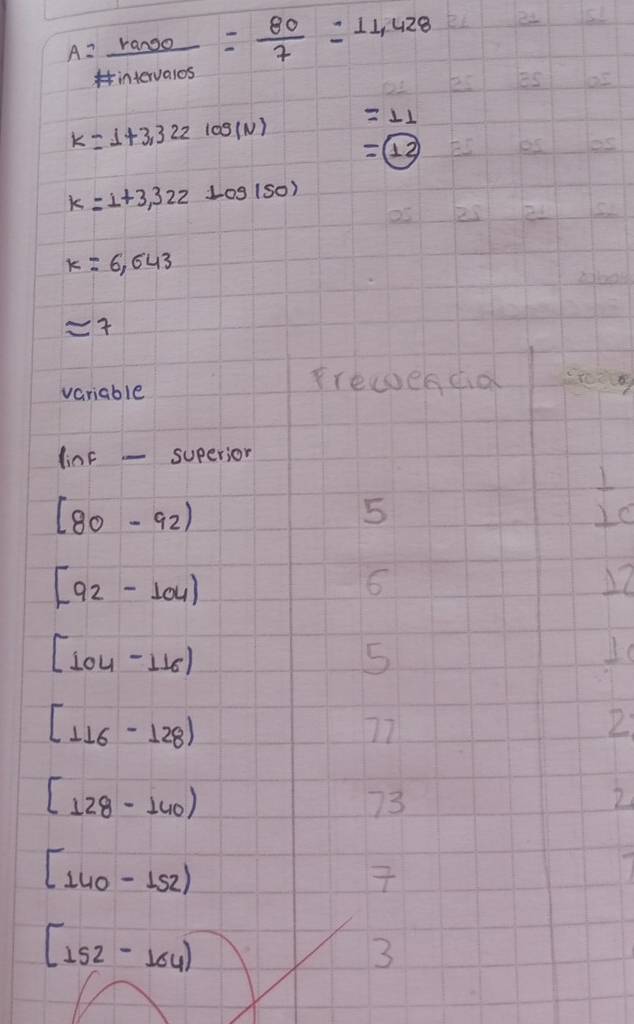 A= rango / #intervalos = 80 / 7 = 11,428
= 11
k=1+3,322 log(N)
= 12
k=1+3,322 Log(50)
k=6,643
≈7
variable Frecuencia
linf - superior
1
[80 - 92) 5 10
[92 - 104) 6 12
[104 - 116) 5 10
[116 - 128) 11 2
[128 - 140) 13 2
[140 - 152) 7
[152 - 164) 3